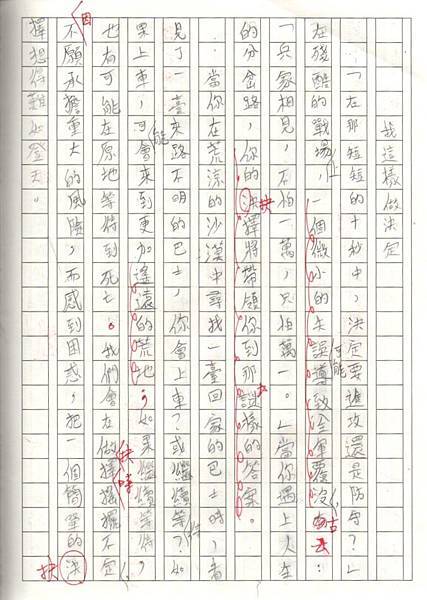 我這樣做決定
「在那短短的十秒中,決定要進攻還是防守?」
在殘酷的戰場上,一個微小的失誤可能導致全軍覆沒
「兵家相見,不怕一萬,只怕萬一。」當你遇上人生
的分岔路,你的決擇將帶領你到那謎樣的答案。
當你在荒涼的沙漠中尋找一臺回家的巴士時,看
見了一臺來路不明的巴士,你會上車?或繼續等?如
果上車,可能會來到更加遙遠的荒地;如果繼續等待,
也有可能在原地等待到死亡。我們會在做擇擺擺不定,
不願承擔重大的風險,而感到困惑,把一個簡單的決
擇想得難如登天。